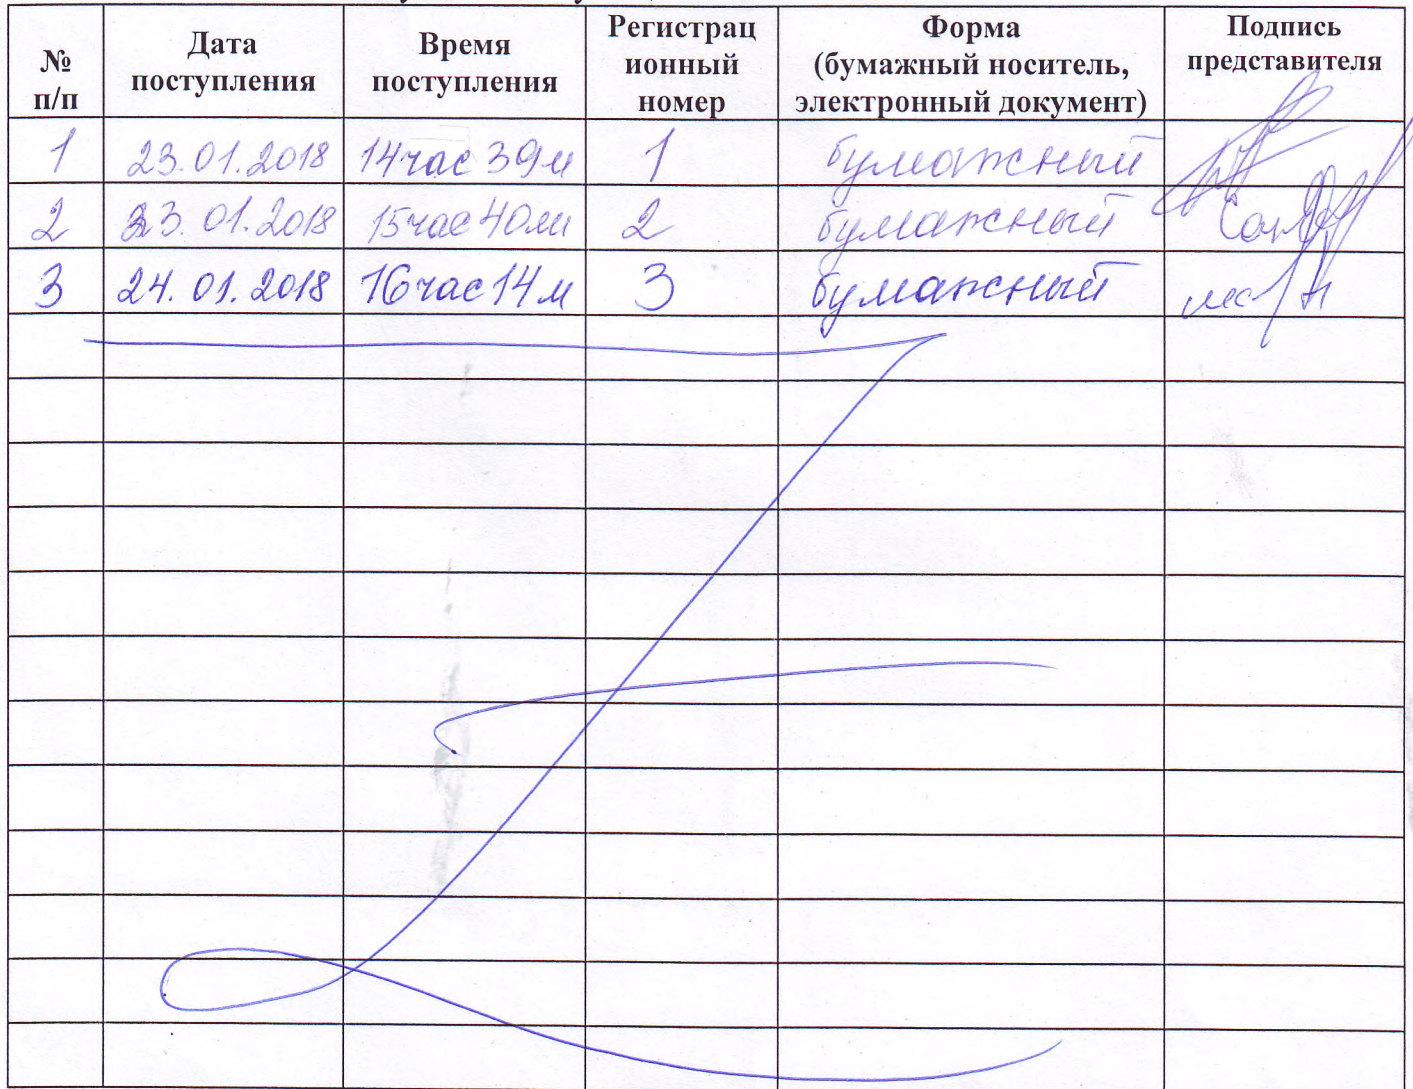 № п/п Дата поступления Время поступления Регистрац ионный номер Форма (бумажный носитель, электронный документ) Подпись представителя
1 23.01.2018 14 час 39 м 1 бумажный
2 23.01.2018 15 час 40 мин 2 бумажный
3 24.01.2018 16 час 14 м 3 бумажный